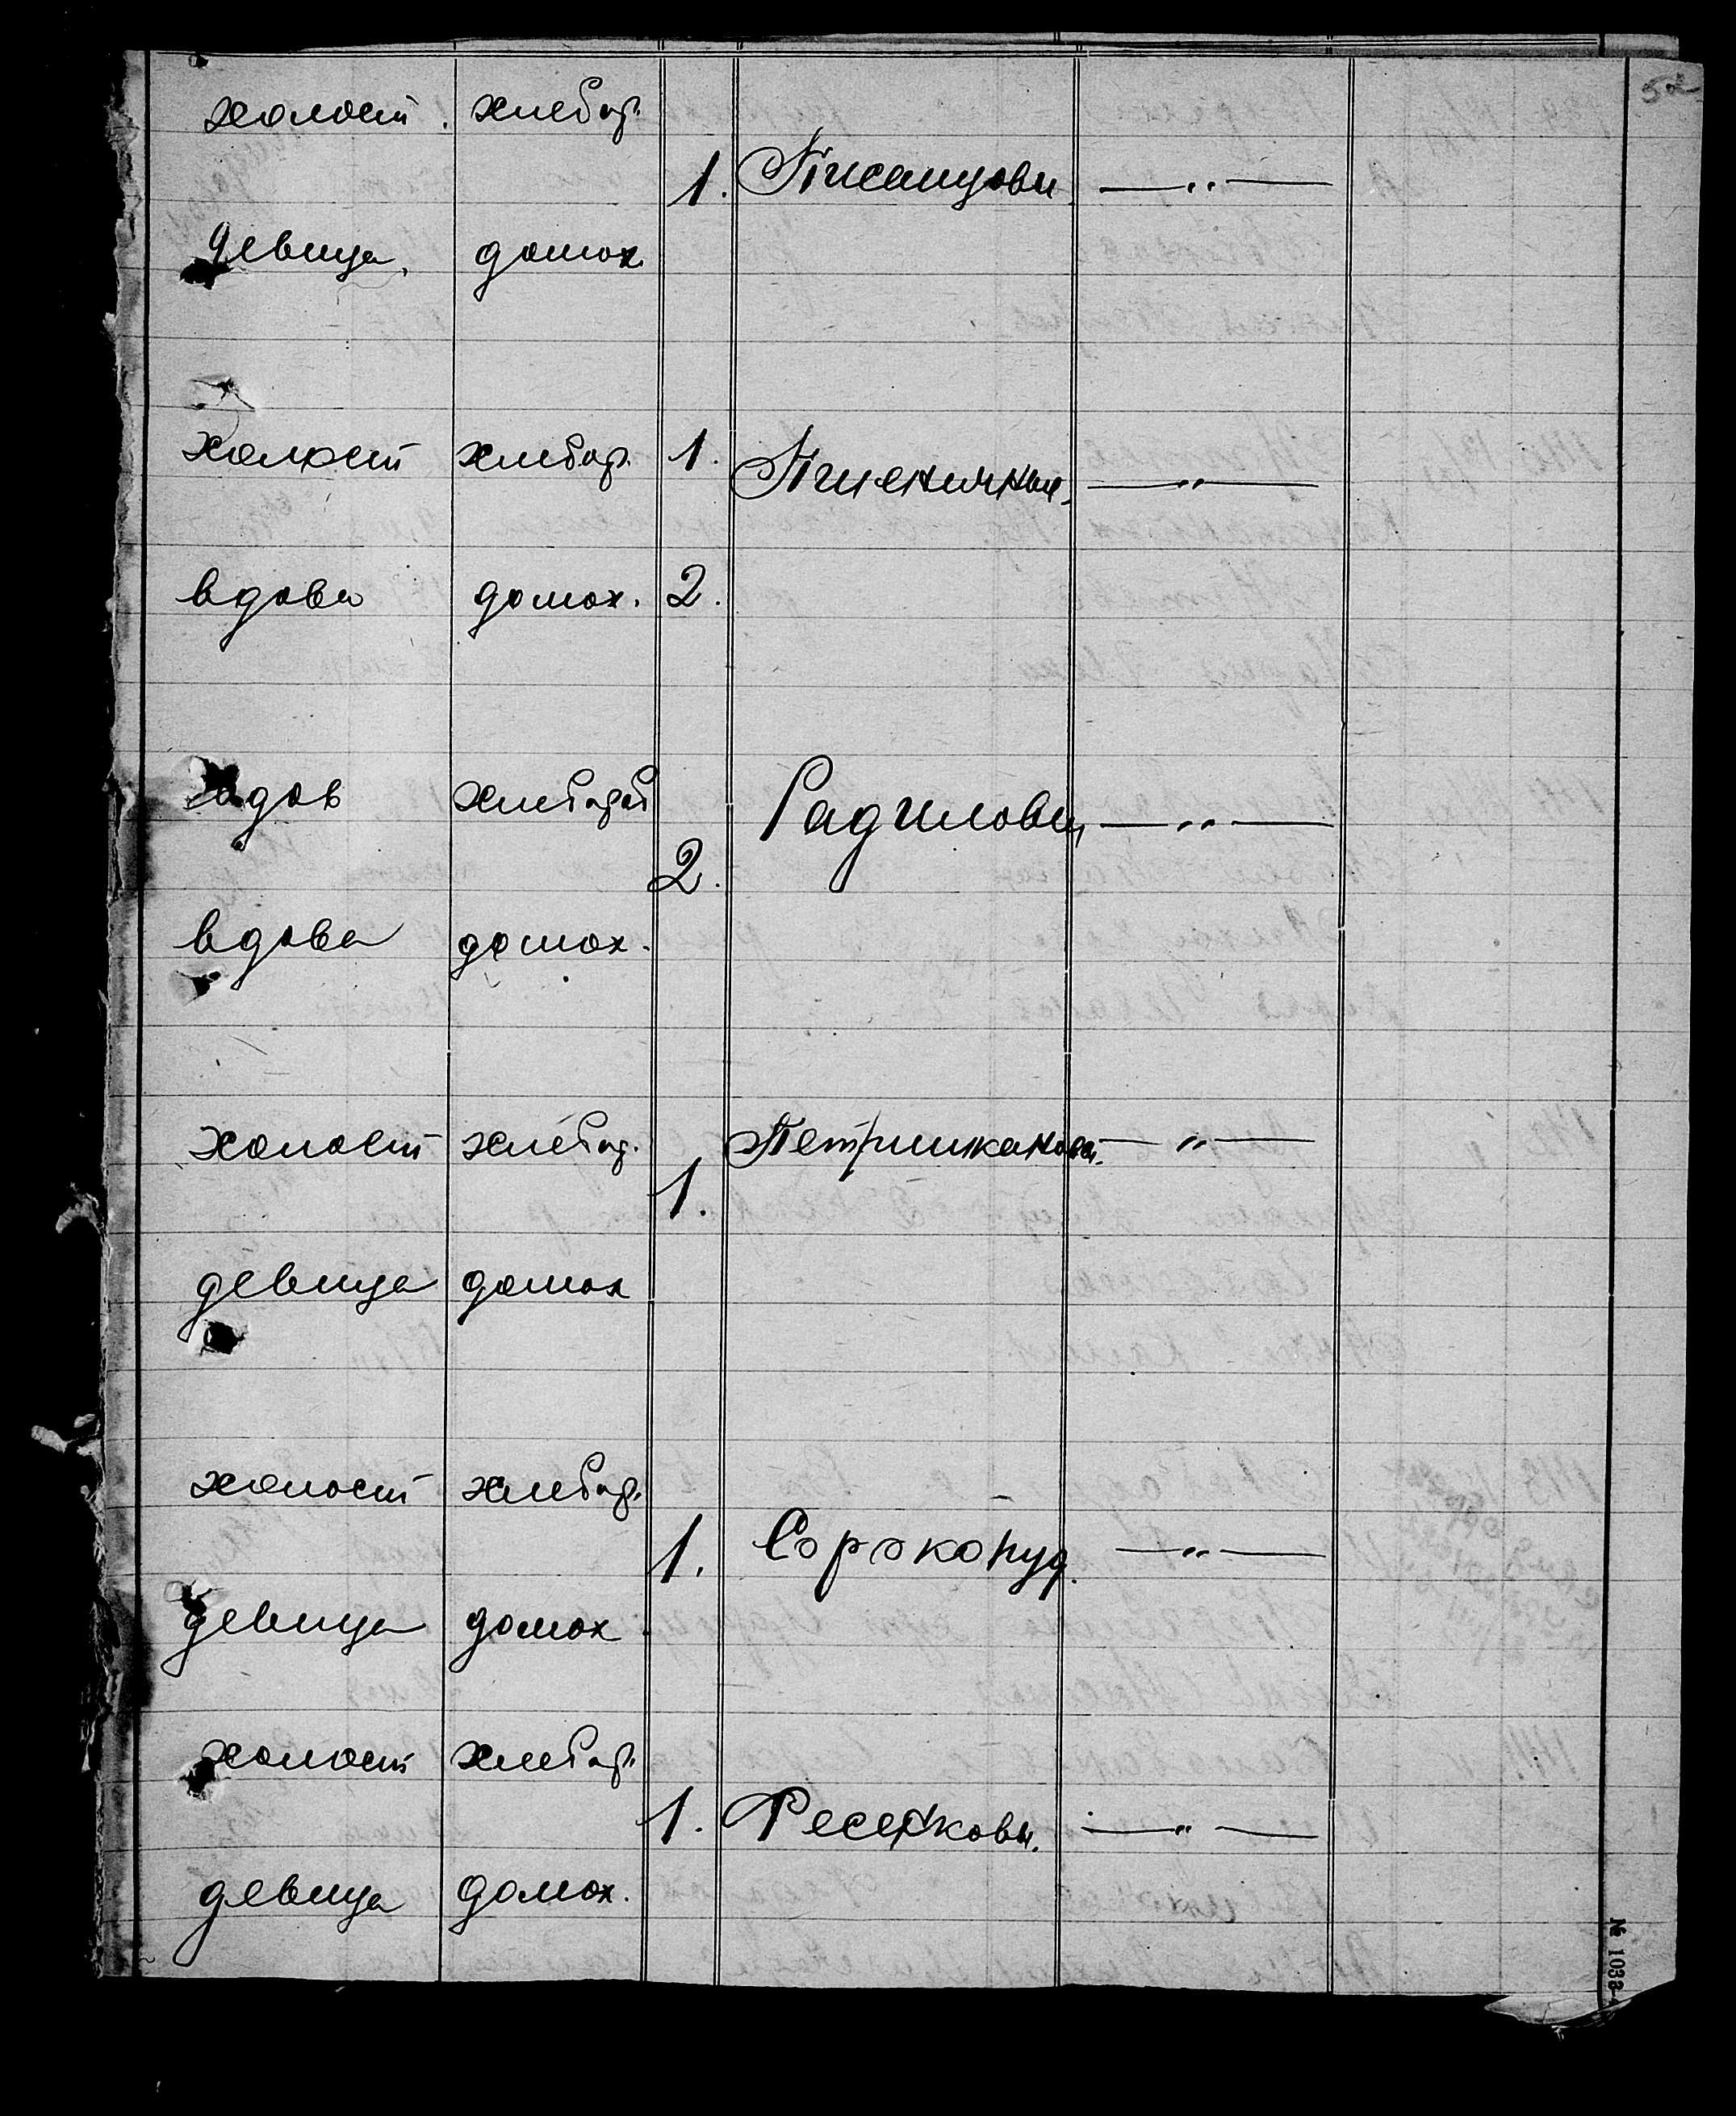 52
холост. хлебор.
1. Писанцовы — „ —
девица. домох.
холост хлебор. 1.
Пшеничные. — „ —
вдова домох. 2.
вдов хлебороб Радиловы — „ —
2.
вдова домох.
холост хлебор. Петришкановы. — „ —
1.
девица домох
холост хлебор.
1. Сорокопуд. — „ —
девица домох
холост хлебор.
1. Ресенковы. — „ —
девица домох.
№ 1038-